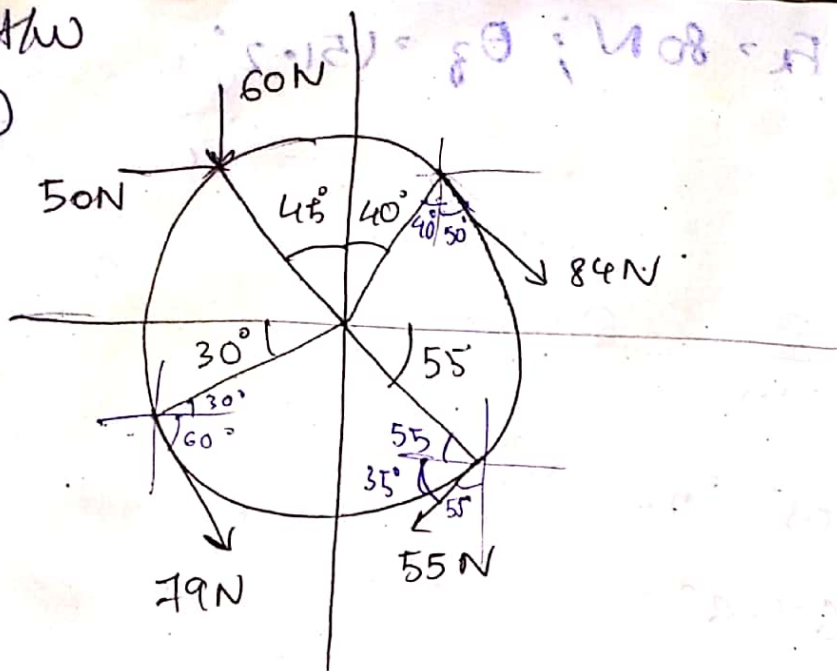 H/W
60N
50N
45° 40°
40° 50°
84N
30°
55
30°
60°
55
35°
55
79N
55N